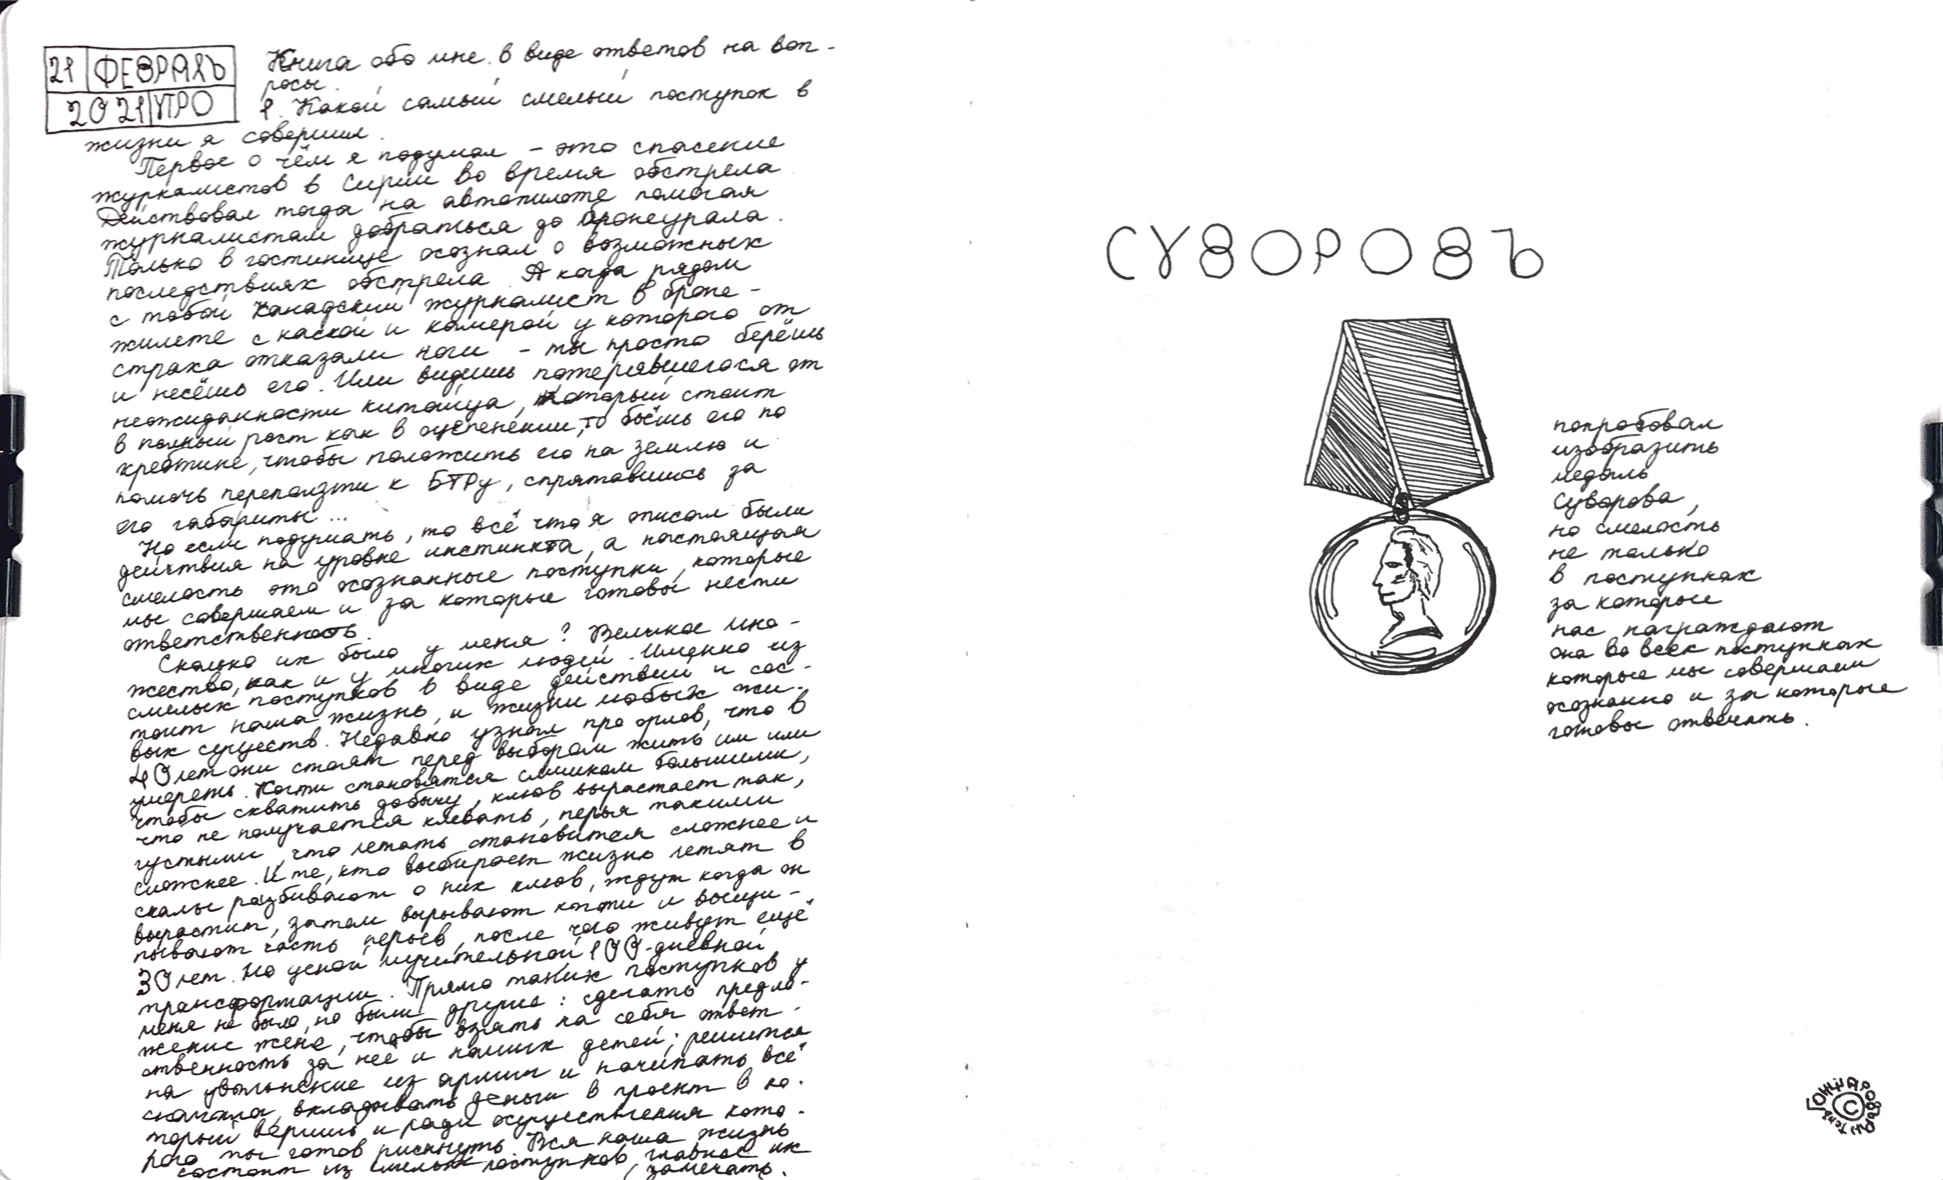 21 ФЕВРАЛЬ
2021 УТРО
Книга обо мне в виде ответов на воп-
росы.
1. Какой самый смелый поступок в
жизни я совершил.
Первое о чём я подумал - это спасение
журналистов в Сирии во время обстрела
Действовал тогда на автопилоте помогая
журналистам добраться до бронеурала.
Только в гостинице осознал о возможных
последствиях обстрела. А когда рядом
с тобой канадский журналист в броне-
жилете с каской и камерой у которого от
страха отказали ноги - ты просто берёшь
и несёшь его. Или видишь потерявшегося от
неожиданности китайца, который стоит
в полный рост как в оцепенении, то бьёшь его по
хребтине, чтобы положить его на землю и
помочь переползти к БТРу, спрятавшись за
его габариты...
Но если подумать, то всё что я описал были
действия на уровне инстинкта, а настоящая
смелость это осознанные поступки, которые
мы совершаем и за которые готовы нести
ответственность.
Сколько их было у меня? Великое мно-
жество, как и у многих людей. Именно из
смелых поступков в виде действий и сос-
тоит наша жизнь, и жизни любых жи-
вых существ. Недавно узнал про орлов, что в
40 лет они стоят перед выбором жить им или
умереть. Когти становятся слишком большими,
чтобы схватить добычу, клюв вырастает так,
что не получается клевать, перья такими
густыми, что летать становится сложнее и
сложнее. И те, кто выбирает жизнь летят в
скалы разбивают о них клюв, ждут когда он
вырастит, затем вырывают когти и выщи-
пывают часть перьев, после чего живут ещё
30 лет. Но ценой мучительной 100-дневной
трансформации. Прямо таких поступков у
меня не было, но были другие: сделать предло-
жение жене, чтобы взять на себя ответ-
ственность за неё и наших детей; решится
на увольнение из армии и начинать всё
сначала, вкладывать деньги в проект в ко-
торый веришь и ради осуществления кото-
рого ты готов рискнуть. Вся наша жизнь
состоит из смелых поступков, главное их
замечать.
СУВОРОВЪ
попробовал
изобразить
медаль
Суворова,
но смелость
не только
в поступках
за которые
нас награждают
она во всех поступках
которые мы совершаем
осознанно и за которые
готовы отвечать.
©